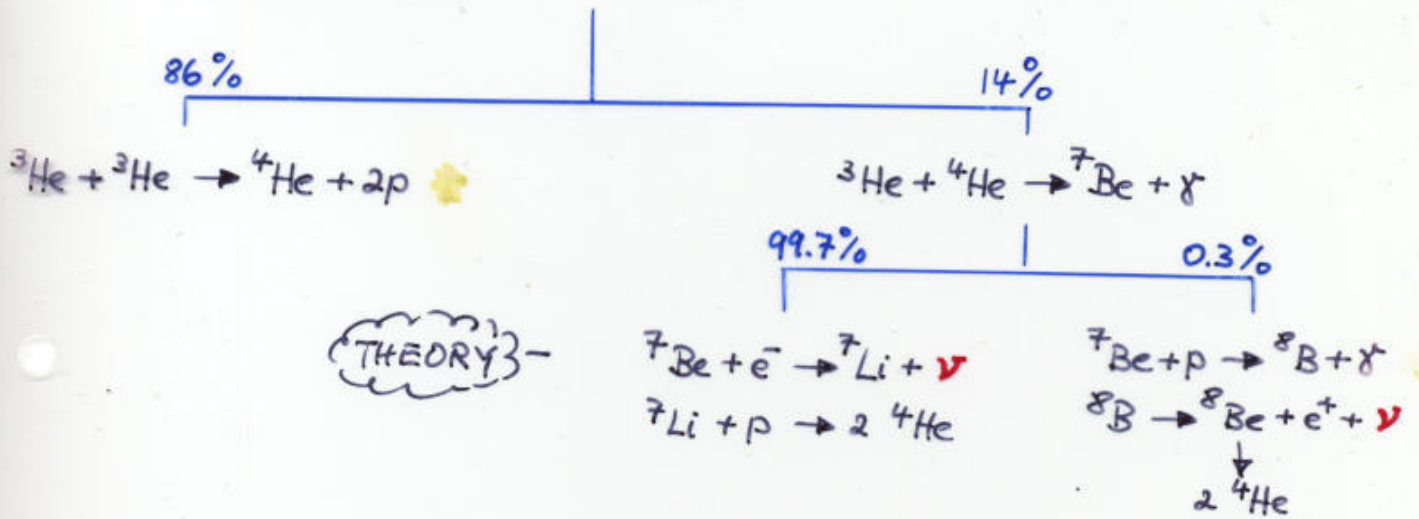 86% 14%
³He + ³He → ⁴He + 2p ³He + ⁴He → ⁷Be + γ
99.7% 0.3%
THEORY ⁷Be + e⁻ → ⁷Li + ν ⁷Be + p → ⁸B + γ
⁷Li + p → 2 ⁴He ⁸B → ⁸Be + e⁺ + ν
↓
2 ⁴He